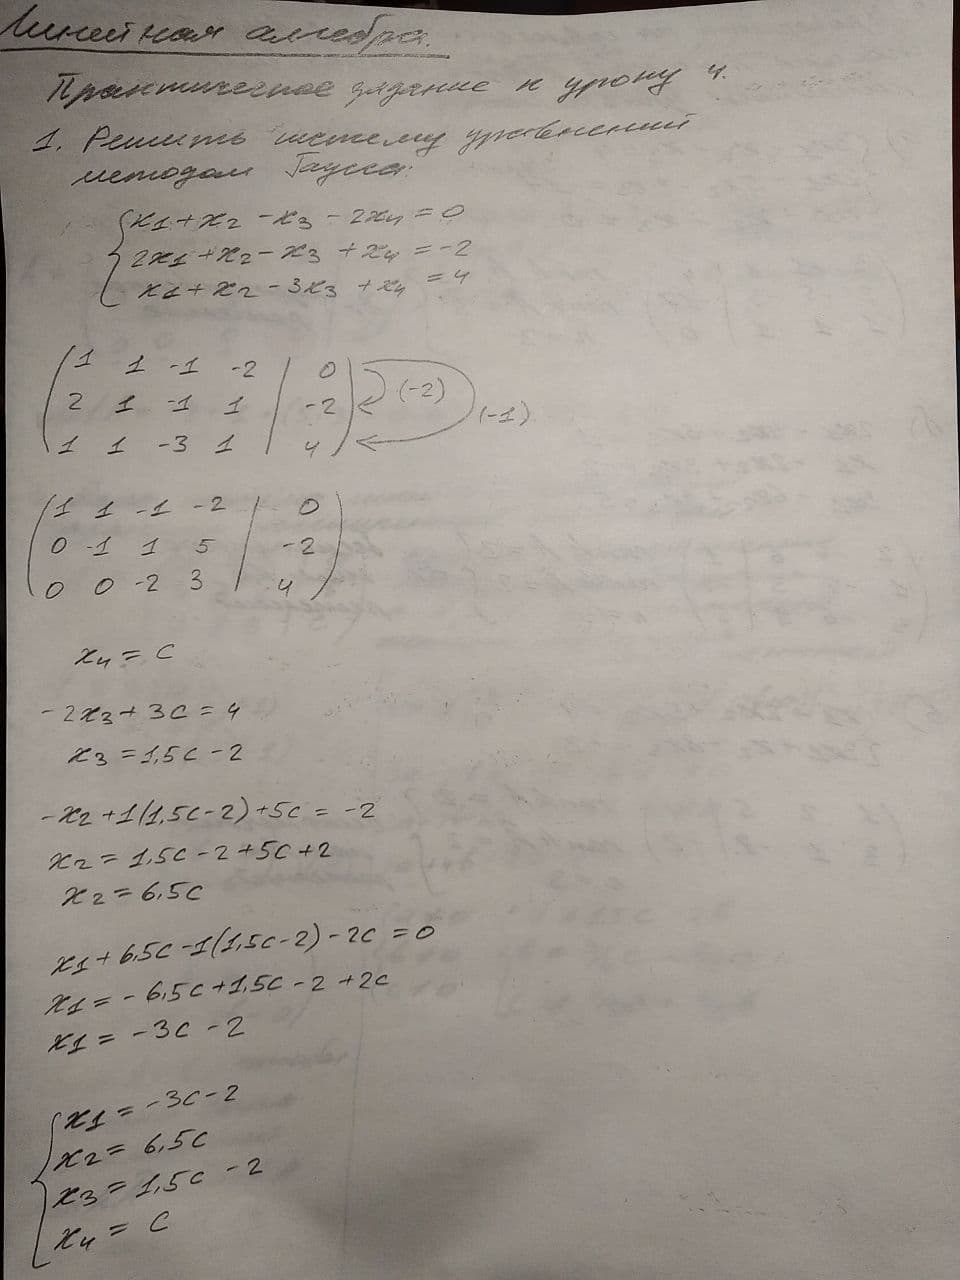 Линейная алгебра.
Практическое задание к уроку 4.
1. Решить систему уравнений
методом Гаусса:
x1 + x2 - x3 - 2x4 = 0
2x1 + x2 - x3 + x4 = -2
x1 + x2 - 3x3 + x4 = 4
1 1 -1 -2 | 0
2 1 -1 1 | -2 (-2)
(-1)
1 1 -3 1 | 4
1 1 -1 -2 | 0
0 -1 1 5 | -2
0 0 -2 3 | 4
x4 = C
-2x3 + 3C = 4
x3 = 1,5C - 2
-x2 + 1(1,5C - 2) + 5C = -2
x2 = 1,5C - 2 + 5C + 2
x2 = 6,5C
x1 + 6,5C - 1(1,5C - 2) - 2C = 0
x1 = -6,5C + 1,5C - 2 + 2C
x1 = -3C - 2
x1 = -3C - 2
x2 = 6,5C
x3 = 1,5C - 2
x4 = C